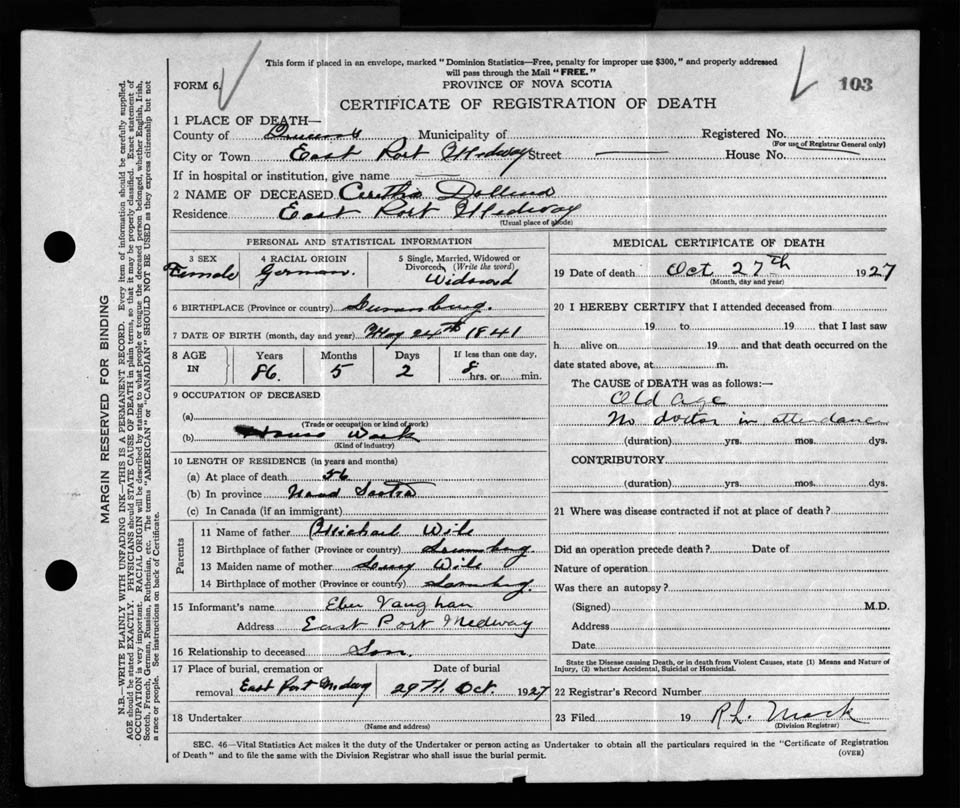 This form if placed in an envelope, marked "Dominion Statistics—Free, penalty for improper use $300," and properly addressed
will pass through the Mail "FREE."
103
FORM 6.
PROVINCE OF NOVA SCOTIA
CERTIFICATE OF REGISTRATION OF DEATH
1 PLACE OF DEATH—
County of Queens Municipality of Registered No.
(For use of Registrar General only)
City or Town East Port Medway Street House No.
If in hospital or institution, give name
2 NAME OF DECEASED
Residence East Port Medway
(Usual place of abode)
PERSONAL AND STATISTICAL INFORMATION
3 SEX 4 RACIAL ORIGIN 5 Single, Married, Widowed or
Divorced, (Write the word)
Female German. Widowed
6 BIRTHPLACE (Province or country) Lunenburg.
7 DATE OF BIRTH (month, day and year) May 24th 1841
8 AGE IN Years Months Days If less than one day
86. 5 2 8 hrs. or min.
9 OCCUPATION OF DECEASED
(a)
(Trade or occupation or kind of work)
(b) House Work
(Kind of industry)
10 LENGTH OF RESIDENCE (in years and months)
(a) At place of death 56
(b) In province Nova Scotia
(c) In Canada (if an immigrant)
Parents
11 Name of father Michael Wile
12 Birthplace of father (Province or country) Lunenburg.
13 Maiden name of mother Wile
14 Birthplace of mother (Province or country) Lunenburg.
15 Informant's name Eber Vaughan
Address East Port Medway
16 Relationship to deceased Son.
17 Place of burial, cremation or Date of burial
removal East Port Medway 29th Oct. 1927
18 Undertaker
(Name and address)
MEDICAL CERTIFICATE OF DEATH
19 Date of death Oct 27th 1927
(Month, day and year)
20 I HEREBY CERTIFY that I attended deceased from
19 to 19 that I last saw
h alive on 19 and that death occurred on the
date stated above, at m.
The CAUSE of DEATH was as follows:—
Old Age
No doctor in attendance
(duration) yrs. mos. dys.
CONTRIBUTORY
(duration) yrs. mos. dys.
21 Where was disease contracted if not at place of death?
Did an operation precede death? Date of
Nature of operation
Was there an autopsy?
(Signed) M.D.
Address
Date
State the Disease causing Death, or in death from Violent Causes, state (1) Means and Nature of
Injury, (2) whether Accidental, Suicidal or Homicidal.
22 Registrar's Record Number
23 Filed 19 R. L.
(Division Registrar)
SEC. 46—Vital Statistics Act makes it the duty of the Undertaker or person acting as Undertaker to obtain all the particulars required in the "Certificate of Registration
of Death" and to file the same with the Division Registrar who shall issue the burial permit. (OVER)
MARGIN RESERVED FOR BINDING
N.B.—WRITE PLAINLY WITH UNFADING INK—THIS IS A PERMANENT RECORD. Every item of information should be carefully supplied.
AGE should be stated EXACTLY. PHYSICIANS should STATE CAUSE OF DEATH in plain terms, so that it may be properly classified. Exact statement of
OCCUPATION is very important. RACIAL ORIGIN will be described by stating to what people or tongue the deceased person belonged, whether English, Irish,
Scotch, French, German, Russian, Ruthenian, etc. The terms "AMERICAN" or "CANADIAN" SHOULD NOT BE USED as they express citizenship but not
a race or people. See instructions on back of Certificate.